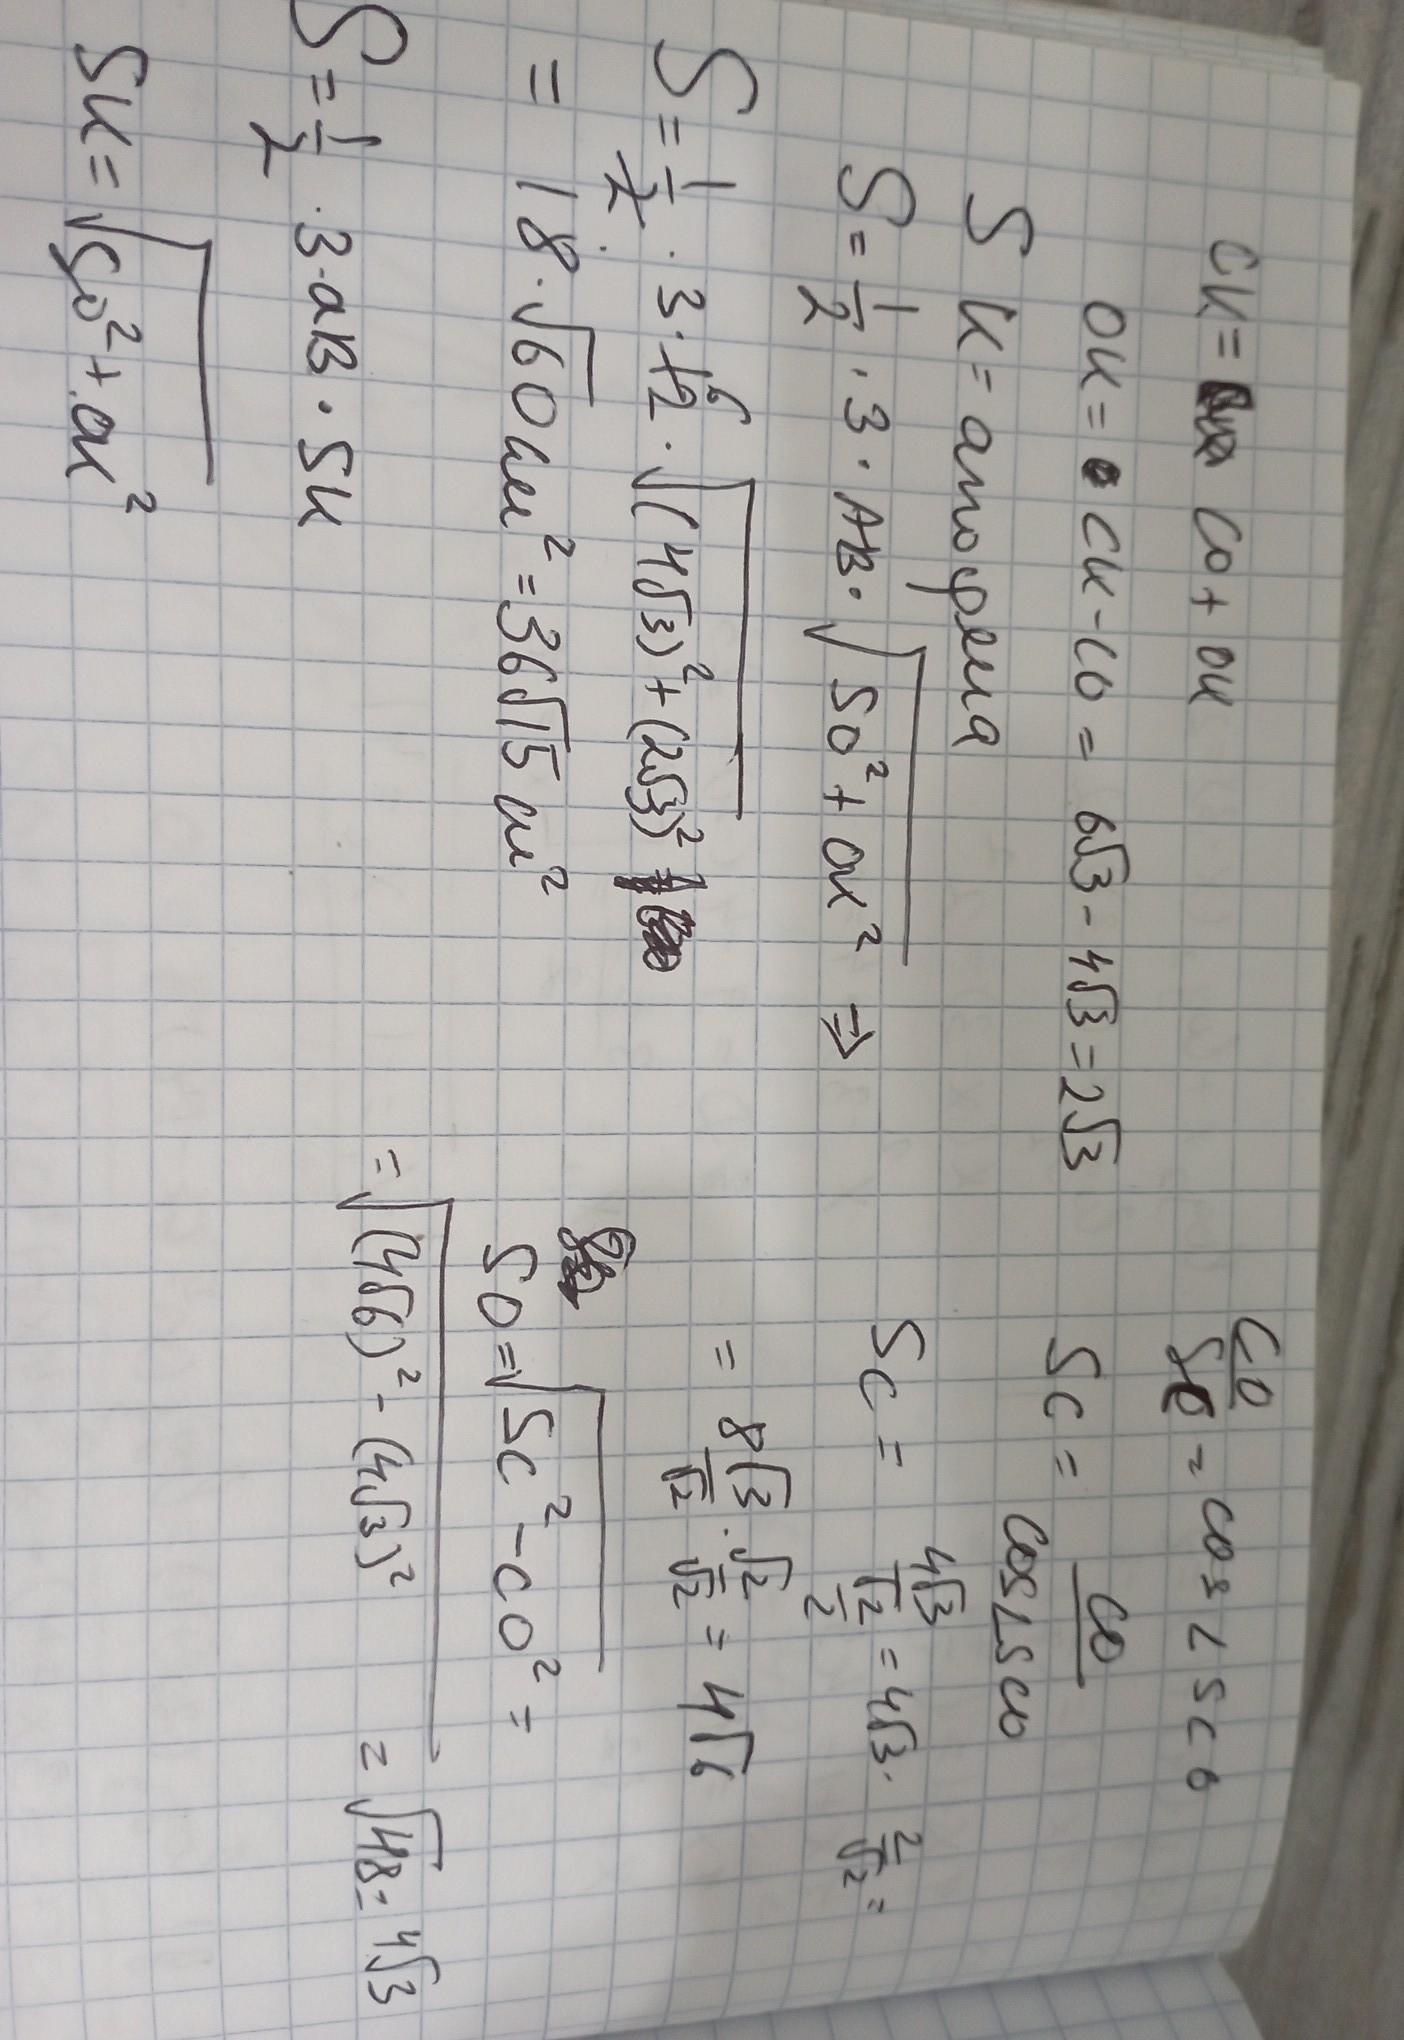 СК = СО + ОК
ОК = СК - СО = 6√3 - 4√3 = 2√3
SК = апофема
S = 1/2 · 3 · АВ · √(SO² + ОК²) ⇒
S = 1/2 · 3 · 12 6 · √((4√3)² + (2√3)²)
= 18 · √60 см² = 36√15 см²
S = 1/2 · 3 · аВ · SК
SК = √(SO² + ОК²)
CO/SC = cos∠SCO
SC = CO/cos∠SCO
SC = 4√3/(√2/2) = 4√3 · 2/√2 =
= 8√3/√2 · √2/√2 = 4√6
SO = √(SC² - CO²) =
= √((4√6)² - (4√3)²) = √48 = 4√3